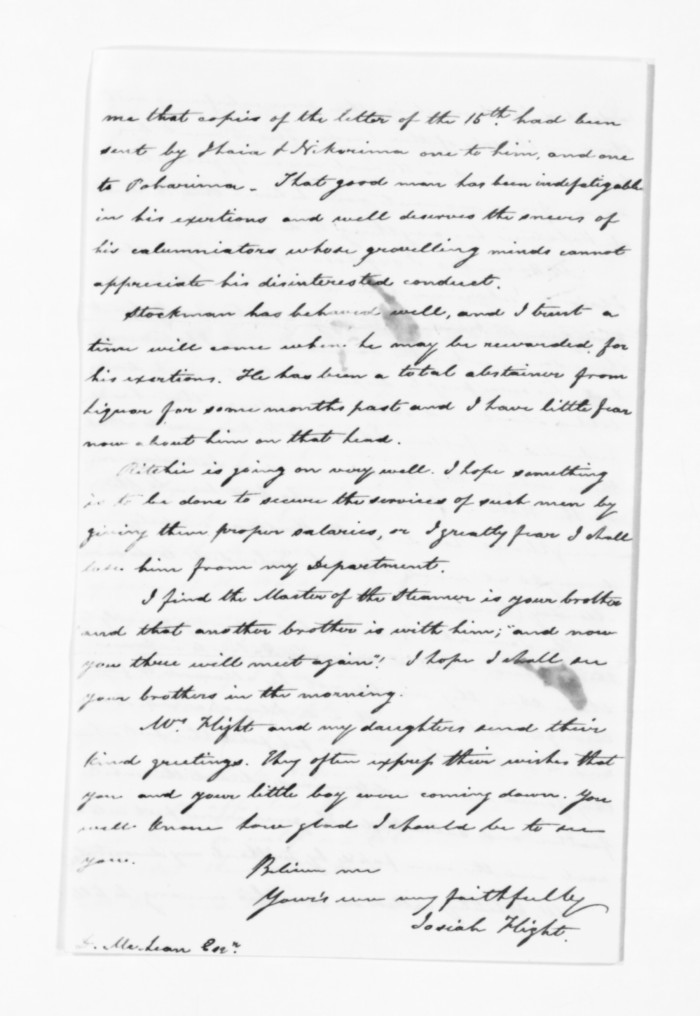 me that copies of the letter of the 15th. had been
sent by Ihaia & Nikorima one to him, and one
to Poharima. That good man has been indefatigable
in his exertions and well deserves the sneers of
his calumniators whose grovelling minds cannot
appreciate his disinterested conduct.
Stockman has behaved well, and I trust a
time will come when he may be rewarded for
his exertions. He has been a total abstainer from
liquor for some months past and I have little fear
now about him on that head.
Ritchie is going on very well. I hope something
is to be done to secure the services of such men by
giving them proper salaries, or I greatly fear I shall
lose him from my Department.
I find the Master of the Steamer is your brother
and that another brother is with him; "and now
you three will meet again"! I hope I shall see
your brothers in the morning.
Mrs. Flight and my daughters send their
kind greetings. They often express their wishes that
you and your little boy were coming down. You
well know how glad I should be to see
you.
Believe me
Your's very faithfully
Josiah Flight.
D. McLean Esqr.